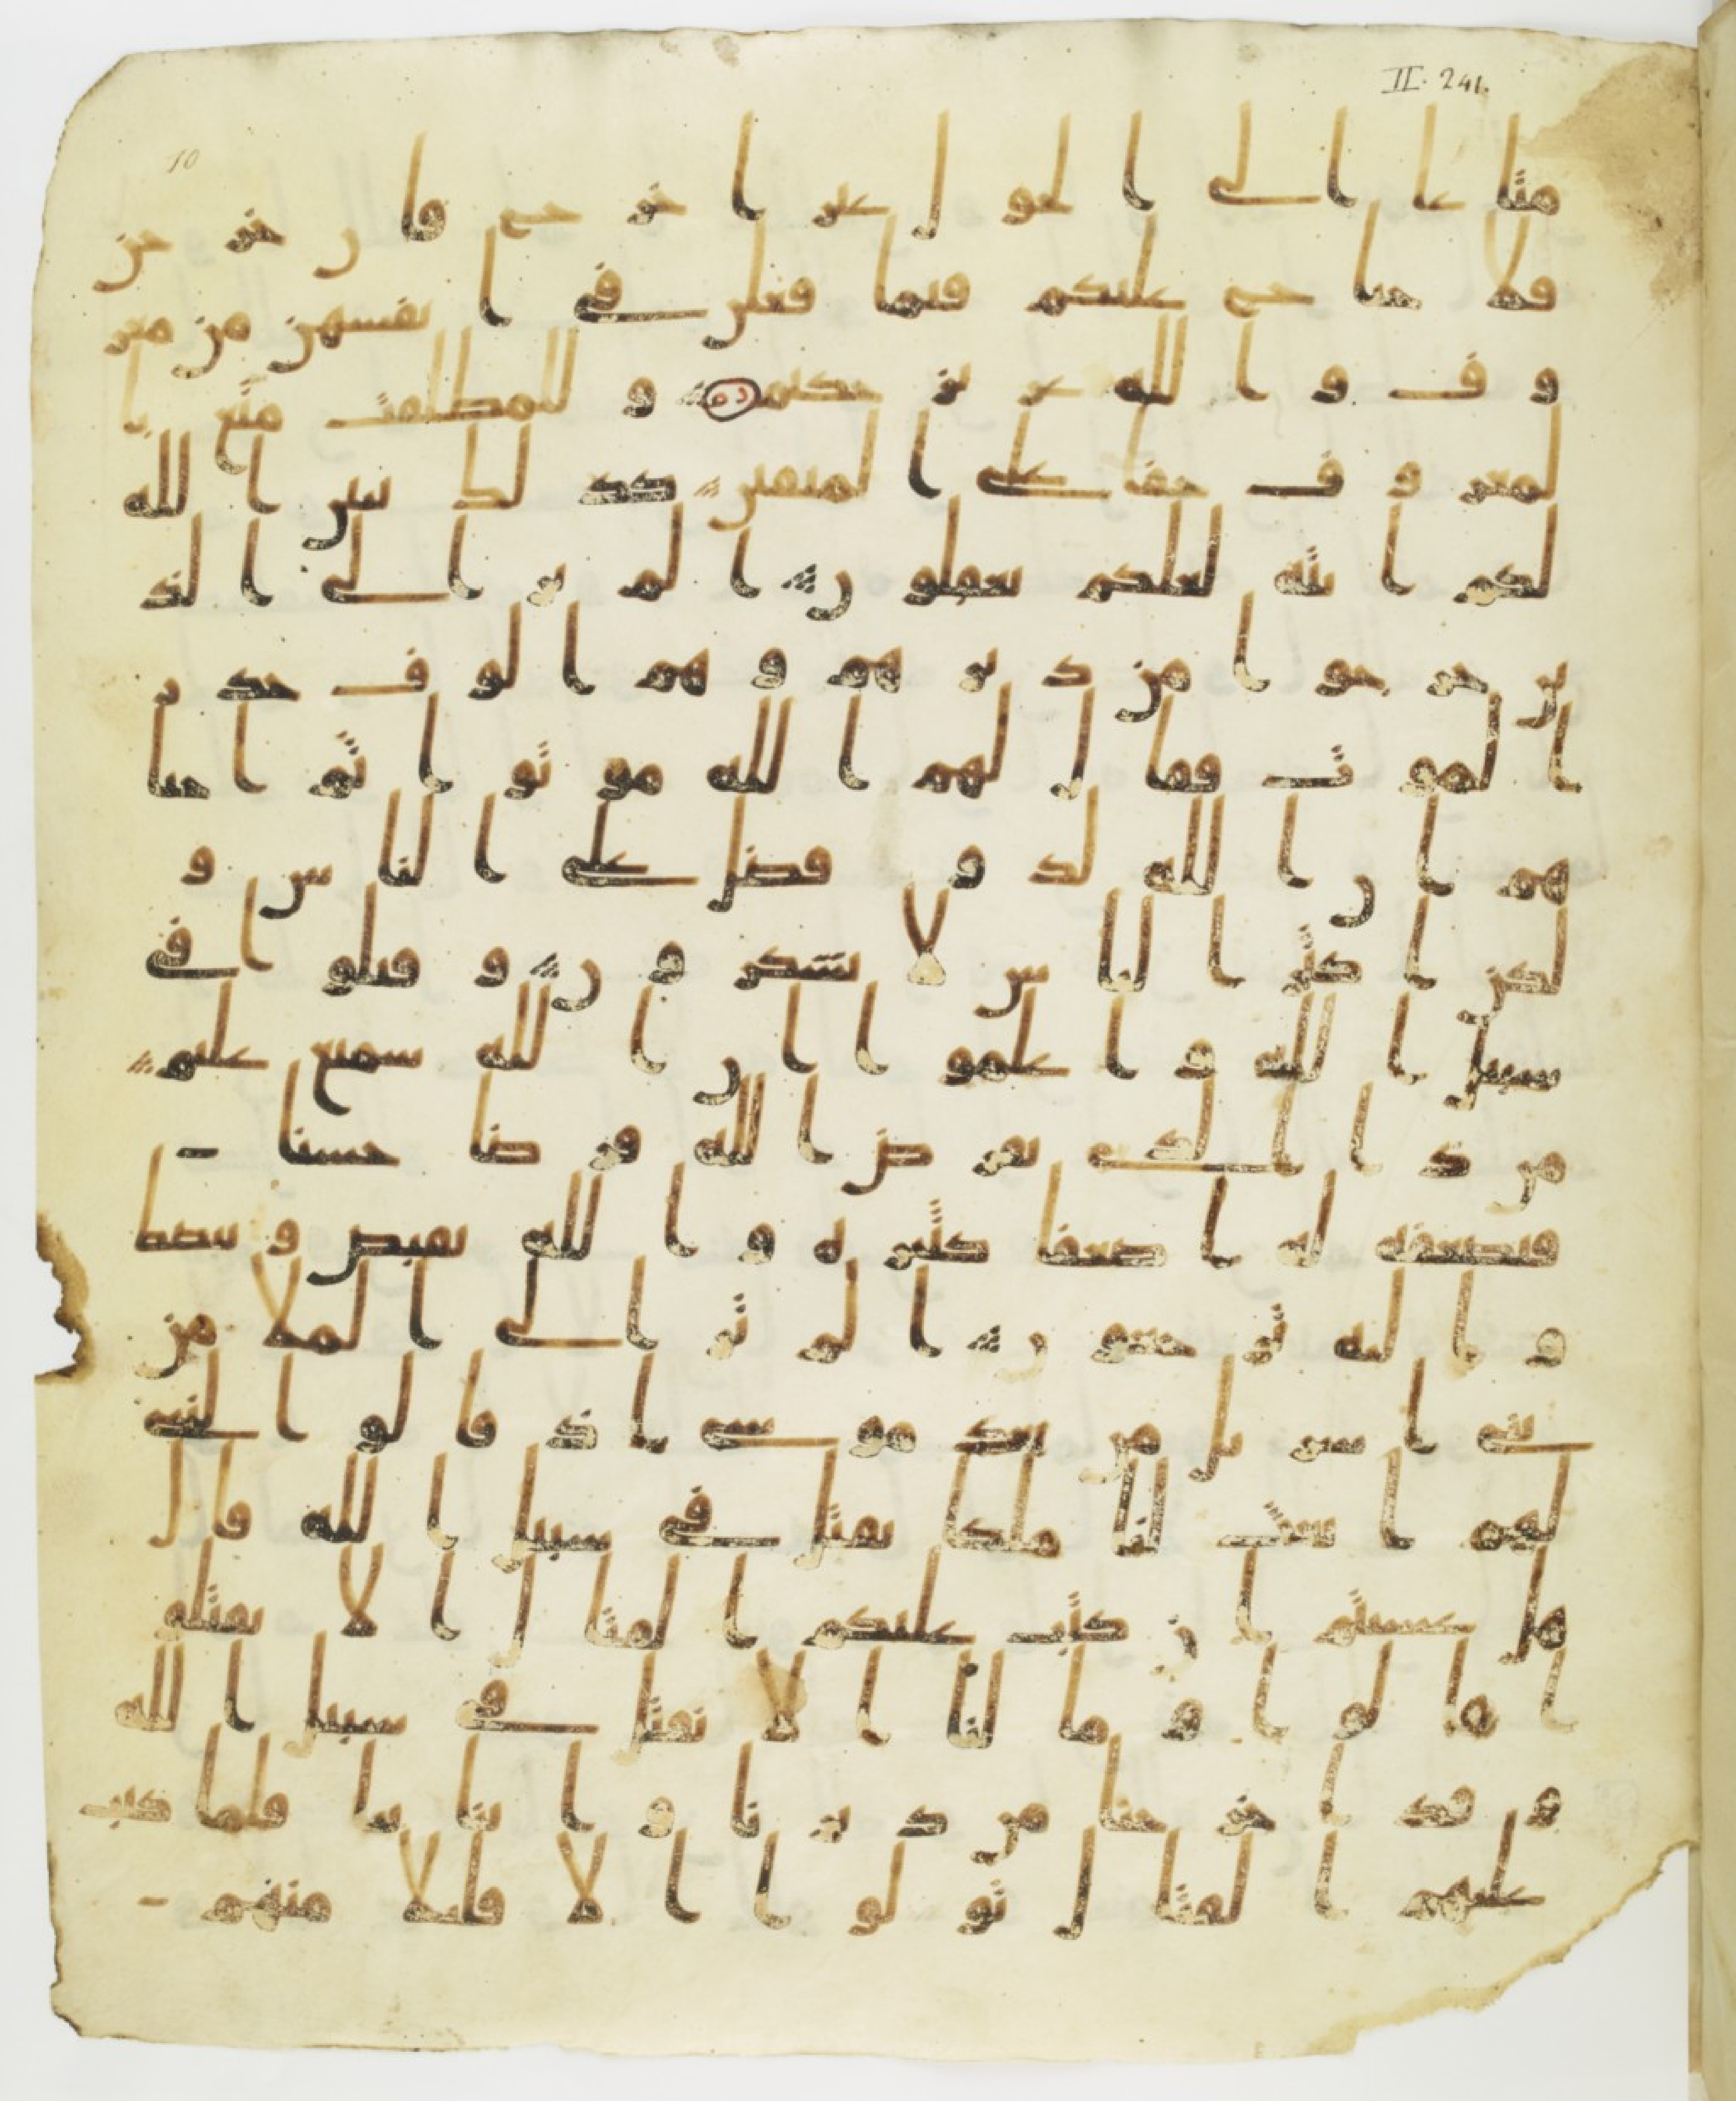 II. 241.
10
متعا الى الحول غير اخرج فان خرجن
فلا جناح عليكم فيما فعلن في انفسهن من معر
وف والله عزيز حكيم وللمطلقت متع با
لمعروف حقا على المتقين كذلك يبين الله
لكم ايته لعلكم تعقلون الم تر الى الذ
ين خرجوا من ديرهم وهم الوف حذر
الموت فقال لهم الله موتوا ثم احيا
هم ان الله لذو فضل على الناس و
لكن اكثر الناس لا يشكرون وقتلوا في
سبيل الله واعلموا ان الله سميع عليم
من ذا الذي يقرض الله قرضا حسنا
فيضعفه له اضعفا كثيره والله يقبض ويبصط
واليه ترجعون الم تر الى الملا من
بني اسريل من بعد موسى اذ قالوا لنبي
لهم ابعث لنا ملكا نقتل في سبيل الله قال
هل عسيتم ان كتب عليكم القتال الا تقتلو
ا قالوا وما لنا الا نقتل في سبيل الله
وقد اخرجنا من ديرنا وابناينا فلما كتب
عليهم القتال تولوا الا قليلا منهم